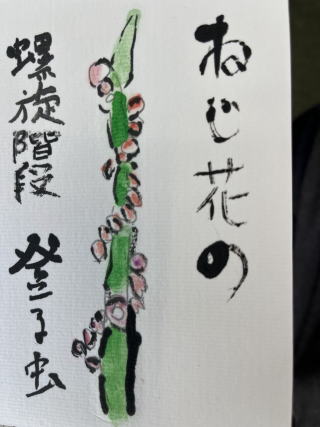 ねじ花の
螺旋階段 登る虫